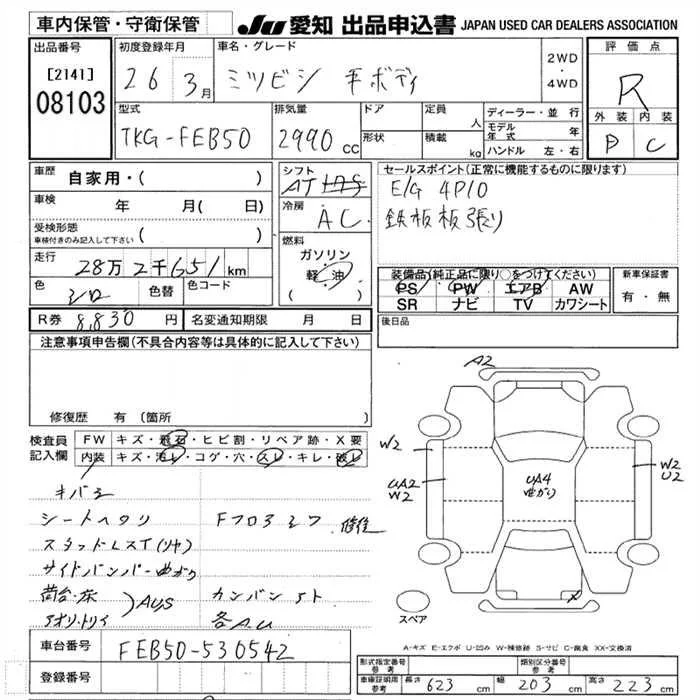 車内保管・守衛保管
JU 愛知 出品申込書 JAPAN USED CAR DEALERS ASSOCIATION
出品番号
[2141]
08103
初度登録年月
26 3月
車名・グレード
ミツビシ 平ボディ
2WD
・
4WD
評価点
R
外装 内装
D C
型式
TKG-FEB50
排気量
2990 cc
ドア
形状
定員
人
積載
kg
ディーラー・並行
モデル年式 年
ハンドル 左・右
車歴
自家用・( )
車検
年 月( 日)
受検形態
車検付きのみ記入して下さい ( )
走行
28万2千651km
色
シロ
色替
色コード
シフト
AT
冷房
AC
燃料
ガソリン
軽・油
( )
セールスポイント(正常に機能するものに限ります)
E/G 4P10
鉄板板張り
装備品(純正品に限り○をつけてください)
PS PW エアB AW
SR ナビ TV カワシート
新車保証書
有・無
R券 8,830 円
名変通知期限 月 日
後日品
注意事項申告欄(不具合内容等は具体的に記入して下さい)
修復歴 有 (箇所 )
検査員
記入欄
FW キズ・飛石・ヒビ割・リペア跡・X要
内装 キズ・汚レ・コゲ・穴・スレ・キレ・破レ
キバミ
シートヘタリ Fフロアミワ 修復
サイドバンパー曲がり
荷台・床
アオリ・トリイ
AUS
カンバンアト
各A.U
A2
W2
UA2
W2
UA4
曲がり
W2
U2
X
スペア
A-キズ E-エクボ U-凹み W-補修跡 S-サビ C-腐食 XX-交換済
車台番号
FEB50-530542
登録番号
形式指定番号
参考
類別区分番号
参考
車庫証明用
参考
長さ 623 cm 幅 203 cm 高さ 223 cm